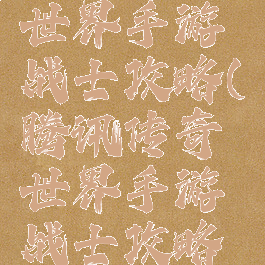 世界手游
战士攻略(
腾讯传奇
世界手游
战士攻略